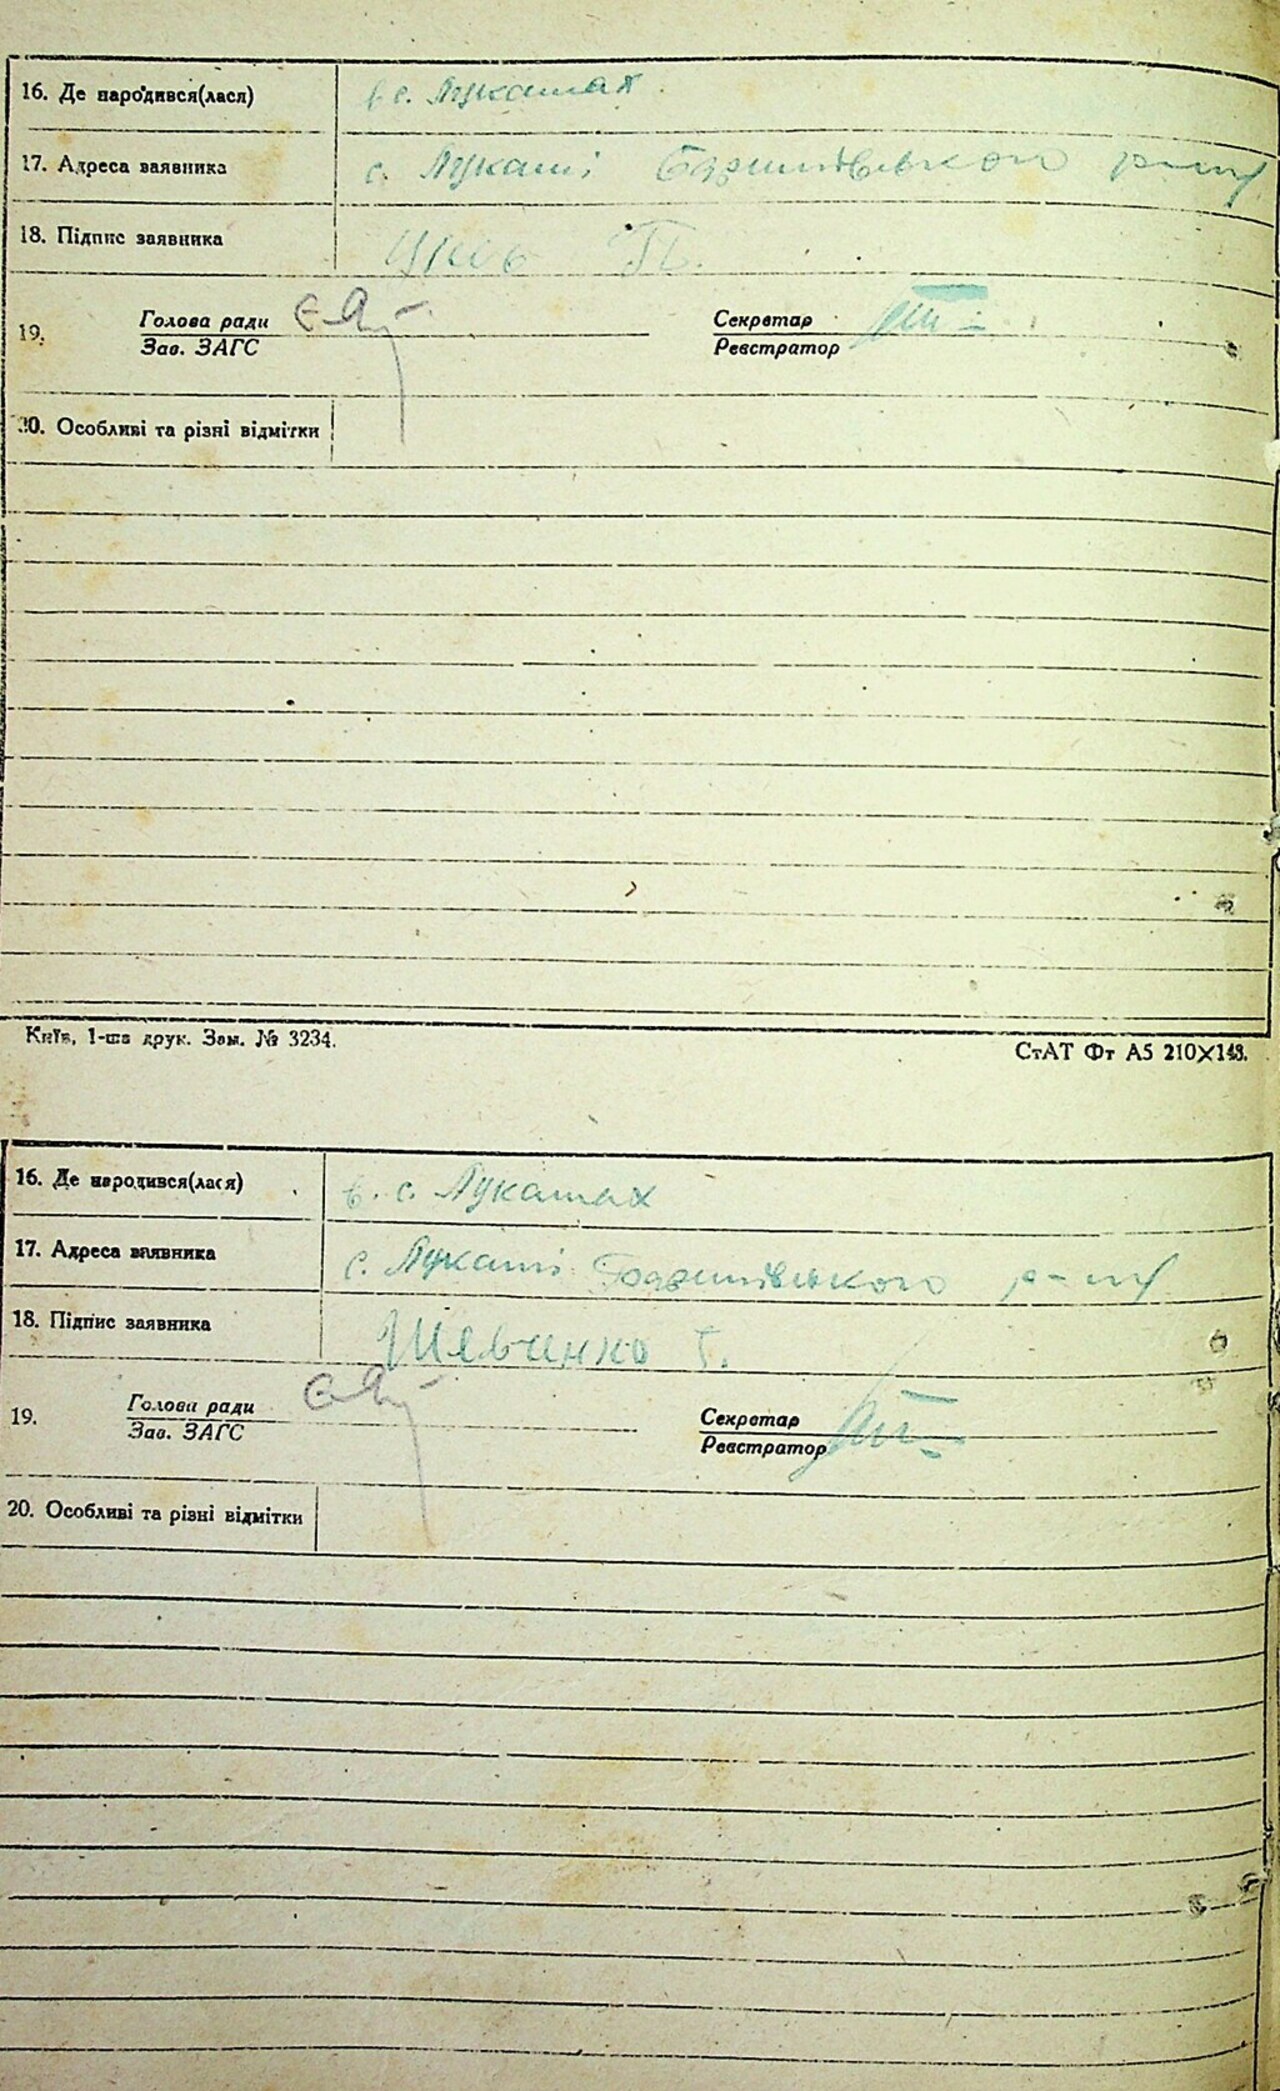 16. Де народився(лася) в с. Лукашах
17. Адреса заявника с. Лукаші Баришівського р-ну
18. Підпис заявника П.
19. Голова ради Секретар
Зав. ЗАГС Реєстратор
20. Особливі та різні відмітки
Київ, 1-ша друк. Зам. № 3234. СтАТ Фт А5 210×148.
16. Де народився(лася) в. с. Лукашах
17. Адреса заявника с. Лукаші Баришівського р-ну
18. Підпис заявника Шевченко Г.
19. Голова ради Секретар
Зав. ЗАГС Реєстратор
20. Особливі та різні відмітки